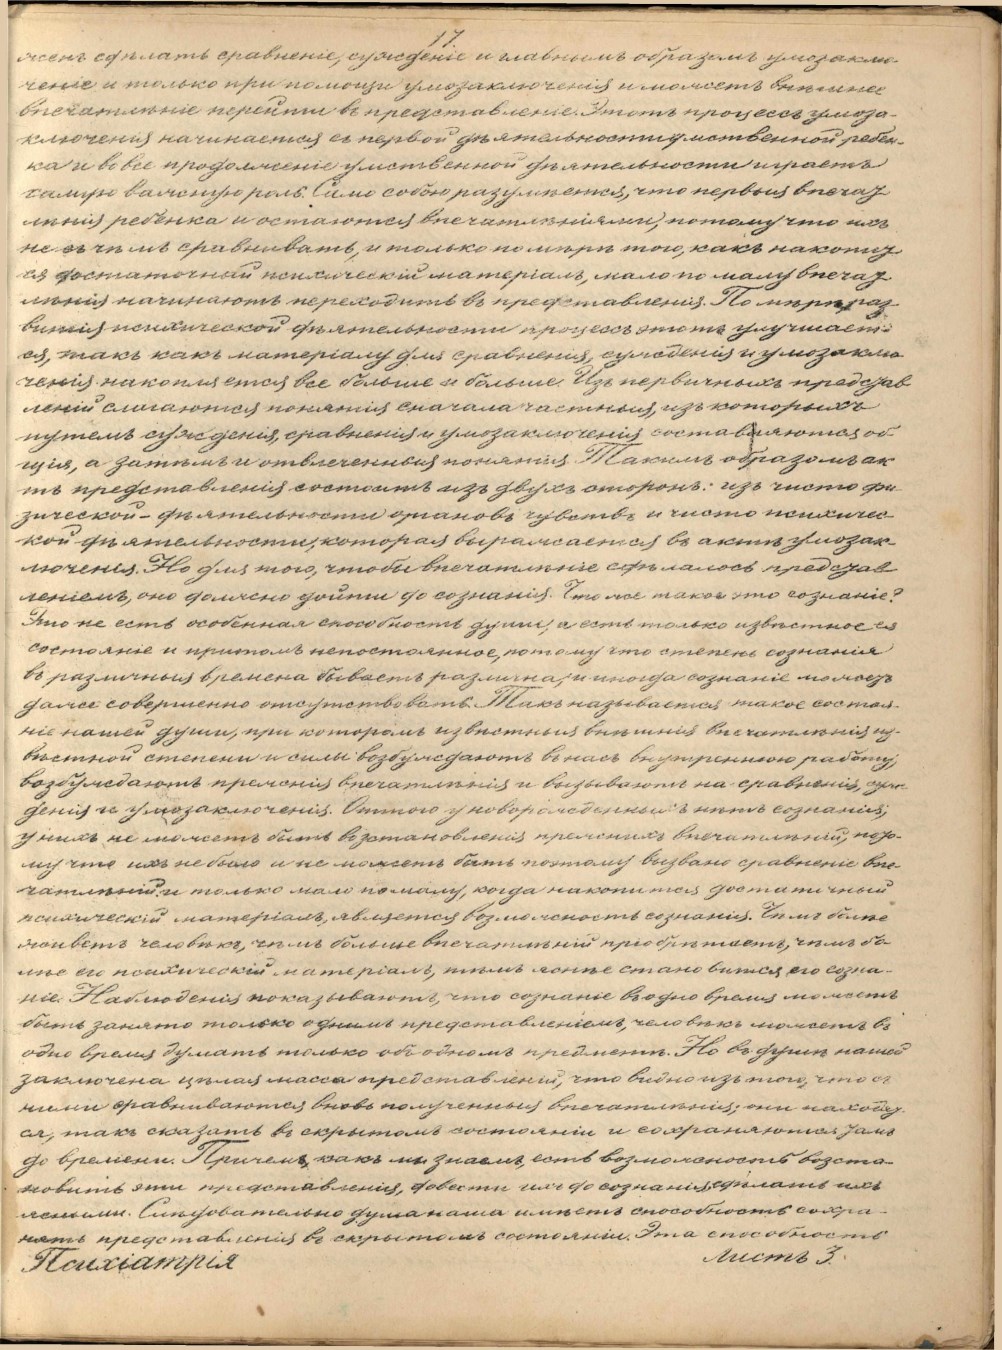 17
женъ сдѣлать сравненіе, сужденіе и главнымъ образомъ умозаклю-
ченіе и только при помощи умозаключенія и можетъ внѣшнее
впечатлѣніе перейти въ представленіе. Этотъ процессъ умоза-
ключенія начинается съ первой дѣятельности умственной ребен-
ка и во все продолженіе умственной дѣятельности играетъ
самую важную роль. Само собою разумѣется, что первыя впечат
лѣнія ребенка и остаются впечатлѣніями, потому что ихъ
не съ чѣмъ сравнивать, и только по мѣрѣ того, какъ накопит
ся достаточный психическій матеріалъ, мало по малу впечат
лѣнія начинаютъ переходить въ представленія. По мѣрѣ раз
витія психической дѣятельности процессъ этотъ улучшает-
ся, такъ какъ матеріалу для сравненія, сужденія и умозаклю
ченія накопляется все больше и больше. Изъ первичныхъ представ
леній слагаются понятія сначала частныя, изъ которыхъ
путемъ сужденія, сравненія и умозаключенія составляются об-
щія, а затѣмъ и отвлеченныя понятія. Такимъ образомъ ак
тъ представленія состоитъ изъ двухъ сторонъ: изъ чисто фи-
зической - дѣятельности органовъ чувствъ и чисто психичес-
кой дѣятельности, которая выражается въ актѣ умозак-
люченія. Но для того, чтобы впечатлѣніе сдѣлалось представ
леніемъ, оно должно дойти до сознанія. Что же такое это сознаніе?
Это не есть особенная способность души, а есть только извѣстное ея
состояніе и притомъ непостоянное, потому что степень сознанія
въ различныя времена бываетъ различна, и иногда сознаніе можетъ
даже совершенно отсутствовать. Такъ называется такое состоя-
ніе нашей души, при которомъ извѣстныя внѣшнія впечатлѣнія из-
вѣстной степени и силы возбуждаютъ въ насъ внутреннюю работу,
возбуждаютъ прежнія впечатлѣнія и вызываютъ на сравненія, суж-
денія и умозаключенія. Оттого у новорожденныхъ нѣтъ сознанія;
у нихъ не можетъ быть возстановленія прежнихъ впечатлѣній, пот-
му что ихъ не было и не можетъ быть поэтому вызвано сравненіе впе-
чатлѣній и только мало по малу, когда накопится достаточный
психическій матеріалъ, является возможность сознанія. Чѣмъ болѣе
живетъ человѣкъ, чѣмъ больше впечатлѣній пріобрѣтаетъ, чѣмъ бо-
лѣе его психическій матеріалъ, тѣмъ яснѣе становится его созна-
ніе. Наблюденія показываютъ, что сознаніе въ одно время можетъ
быть занято только однимъ представленіемъ, человѣкъ можетъ въ
одно время думать только объ одномъ предметѣ. Но въ душѣ нашей
заключена цѣлая масса представленій, что видно изъ того, что съ
ними сравниваются вновь полученныя впечатлѣнія; они находят
ся, такъ сказать въ скрытомъ состояніи и сохраняются тамъ
до времени. Причемъ, какъ мы знаемъ, есть возможность возста-
новить эти представленія, довести ихъ до сознанія, сдѣлать ихъ
ясными. Слѣдовательно душа наша имѣетъ способность сохра-
нять представленія въ скрытомъ состояніи. Эта способность
Психіатрія Листъ 3.